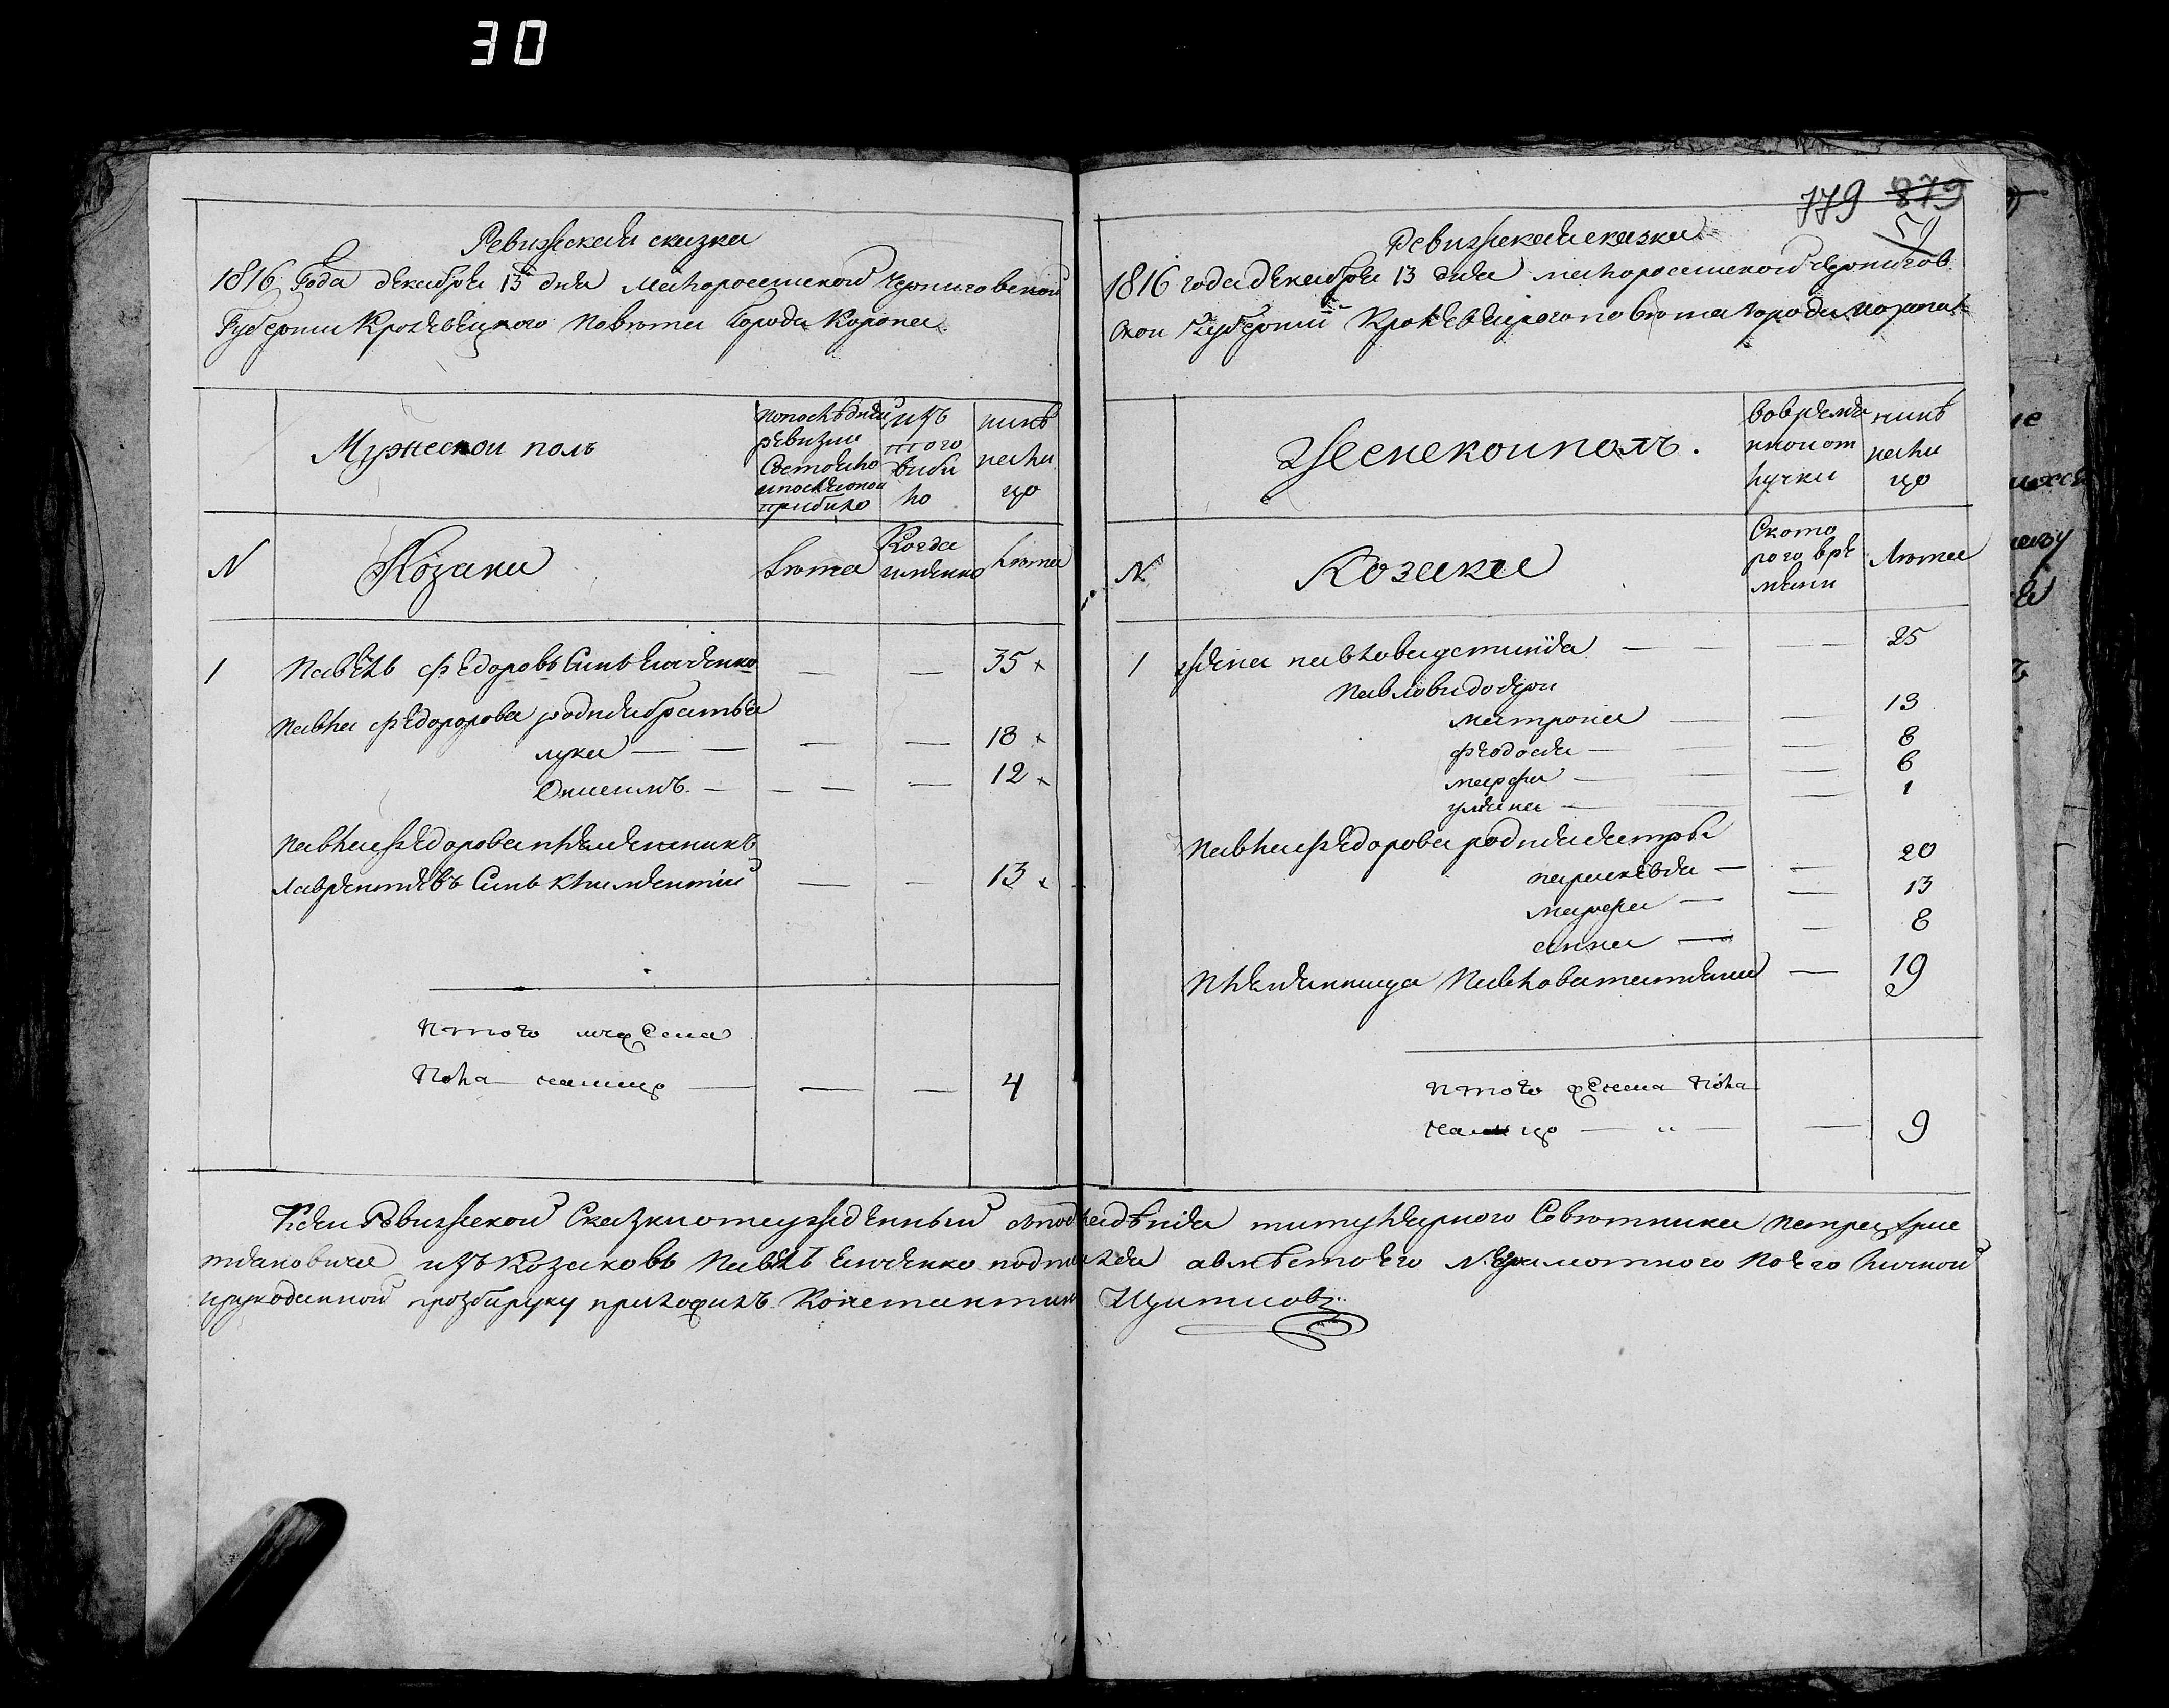 30
Ревизская сказка
1816 Года декабря 13 дня Малоросииской Черниговской
Губернии Кролевецкого Повѣта Города Коропа
Мужескои полъ
попослѣдней ревизии состояло ипослѣоной прибило
изъ того вибило
нинѣ налицо
N
Козаки
Лѣта
Когда имянно
Лѣта
1 Павелъ Федоровъ Синъ — — 35
Павла Федорова родния братья
лука — — — — 18
Онисимъ — — — — 12
Павла Федорова племянникъ
Лаврентиевъ Синъ Климентий — — 13
Итого мужеска
Пола налицо — — — 4
779 879
51
Ревизская сказка
1816 года декабря 13 дня малоросииской чернигов
ской Губернии Кролевецкого повѣта города коропа
Женскои полъ.
вовремянной отлучки
нинѣ налицо
N
Козаки
Скоторого времяни
Лѣта
1 жена павлова устиния — — — 25
павлови дочери
матрона — — 13
феодосия — — 8
марфа — — 6
уляна — — 1
Павла Федорова родния сестры
параскевия — — 20
марфа — — 13
анна — — 8
племянница Павлова татияна — 19
Итого женска пола
налицо — — — 9
Ксей Ревизской Сказки отсуждённый отвладѣния титулярного Совѣтника петра
изъ Козаковъ Павелъ авмѣсто его Неграмотного По его личной
ирукоданной прозбируку приложилъ Константин